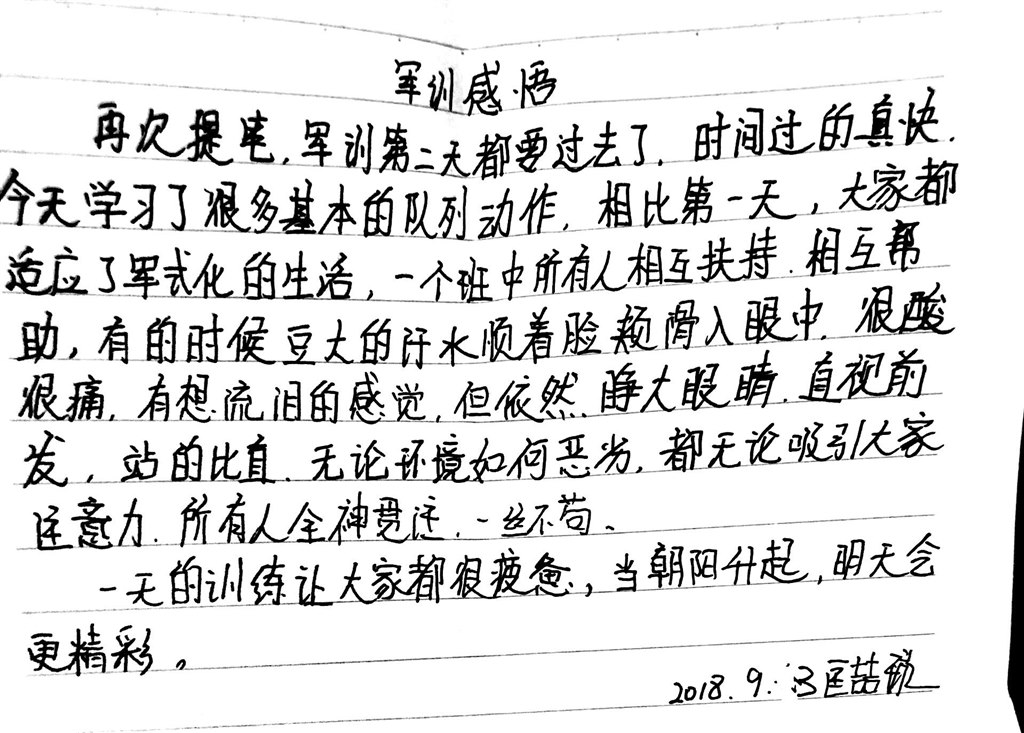 军训感悟
再次提笔,军训第二天都要过去了.时间过的真快.
今天学习了很多基本的队列动作,相比第一天,大家都
适应了军式化的生活,一个班中所有人相互扶持.相互帮
助,有的时候豆大的汗水顺着脸颊滑入眼中.很酸
很痛,有想流泪的感觉,但依然睁大眼睛.直视前
发,站的比直.无论环境如何恶劣,都无论吸引大家
注意力.所有人全神贯注.一丝不苟。
一天的训练让大家都很疲惫,当朝阳升起,明天会
更精彩。
2018.9.